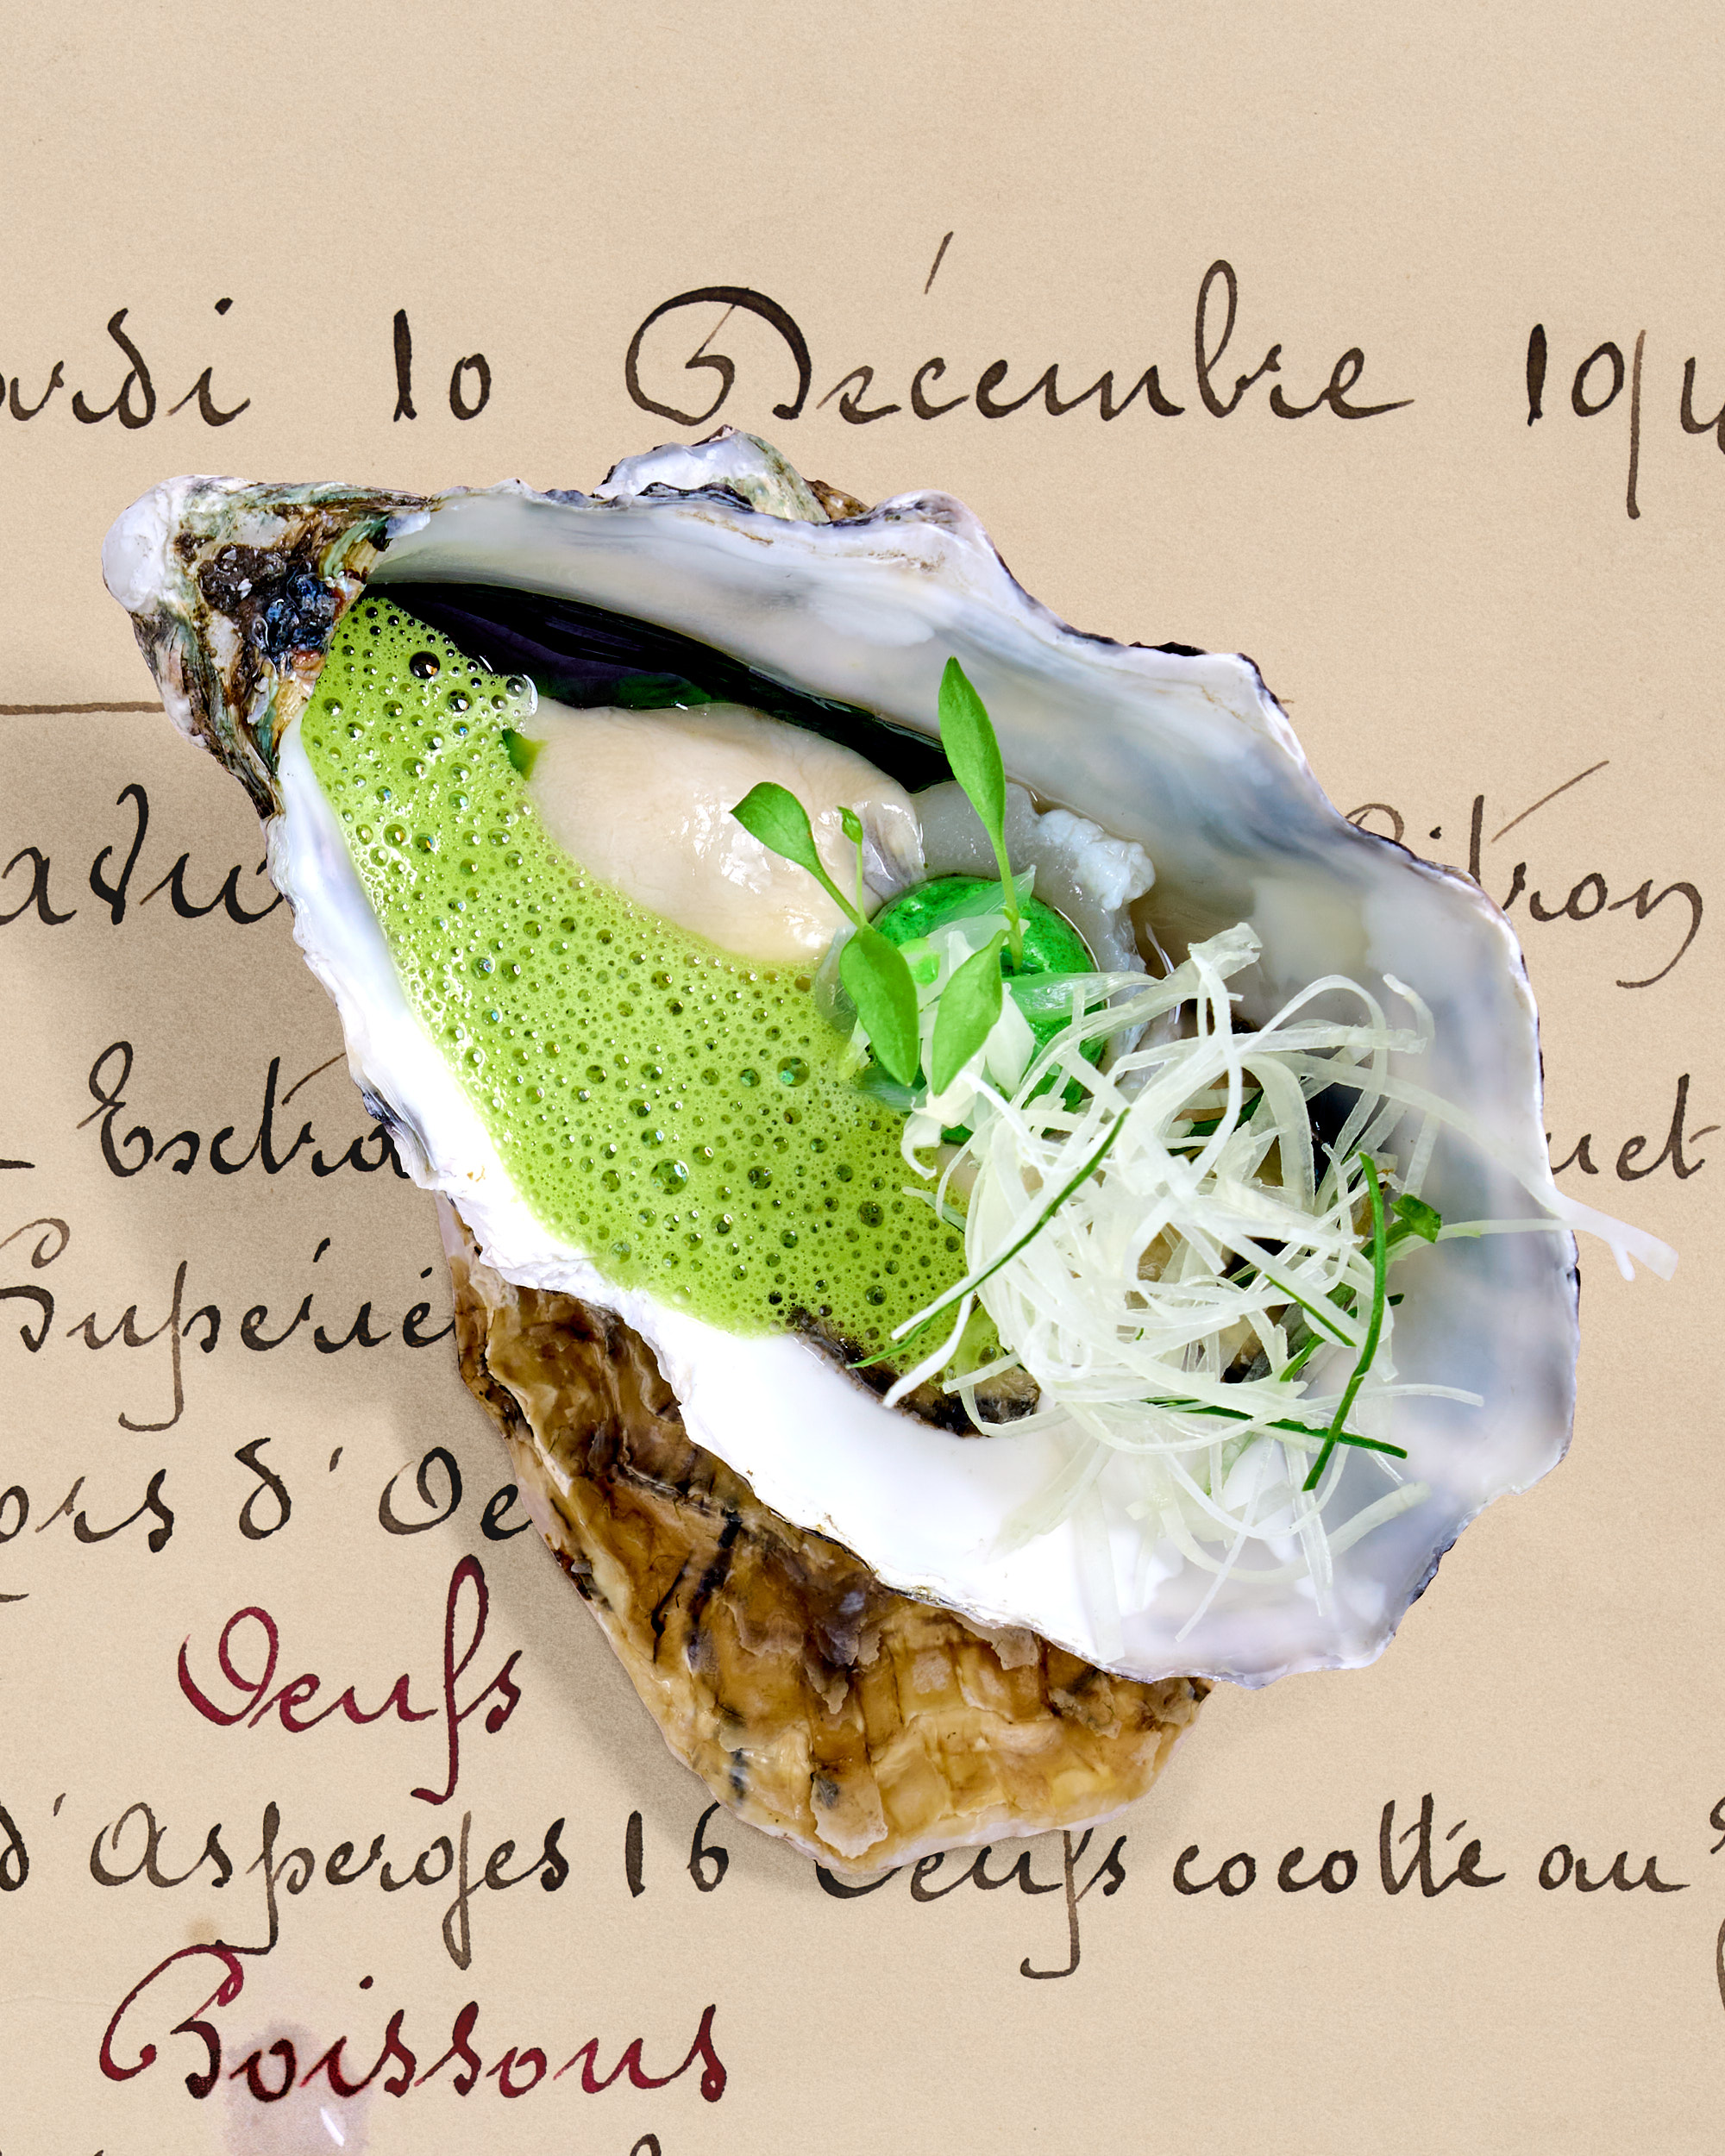 ardi 10 Décembre 194
aviar
itron
Extra
uet
Supérie
ors d'Oe
Oeufs
d'Asperges 16 Oeufs cocotte au
Boissons